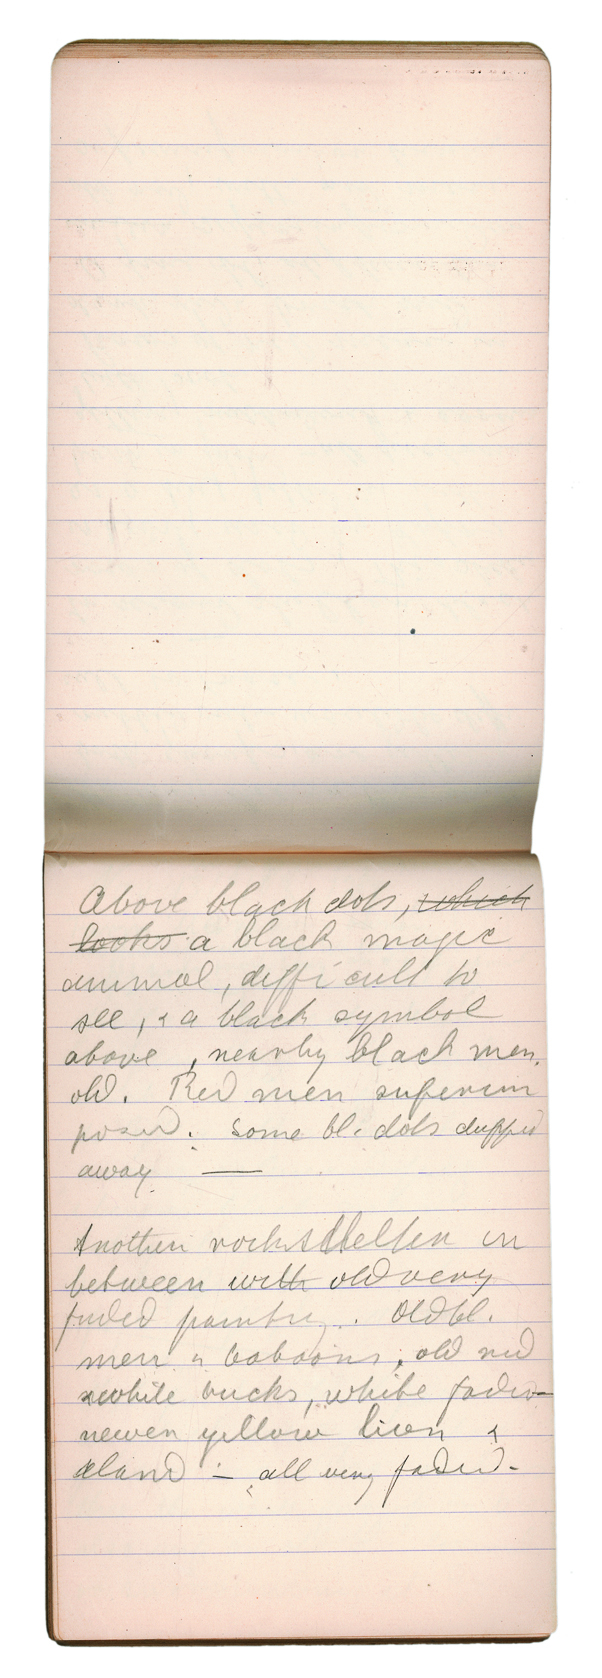 Above black dots, which
looks a black magic
animal, difficult to
see, & a black symbol
above, nearby black men,
old. Red men superim
posed. Some bl. dots
away —
Another rockshelter in
between with old very
faded painting. Old bl.
men & baboons, old red
& white bucks, white faded —
newer yellow lion &
eland — all very faded. —